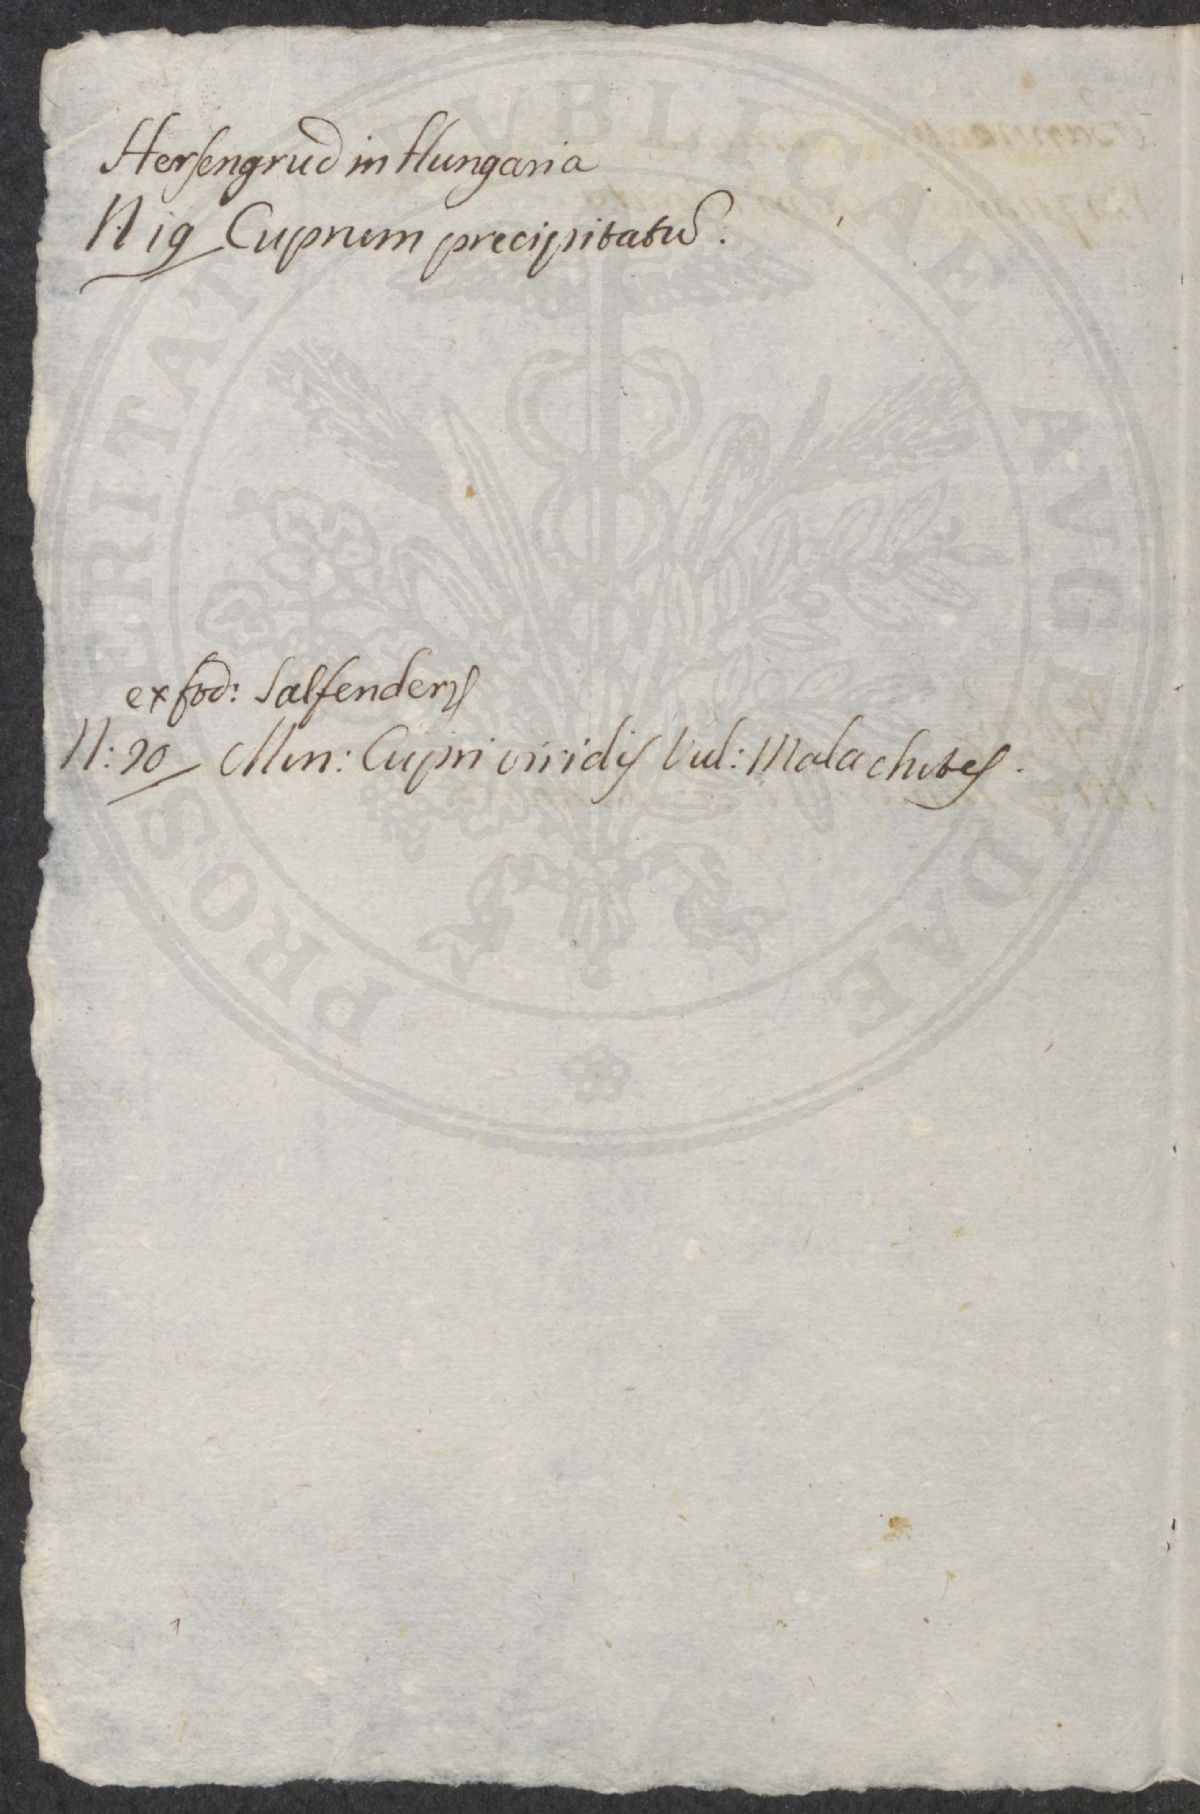 Hersengrud in Hungaria
N. 19 Cuprum precipitatu.
ex fod: Salfenders
N: 20 Min: Cupri viridis Vul: Malachites.
PROSPERITATI PVBLICAE AVGENDAE